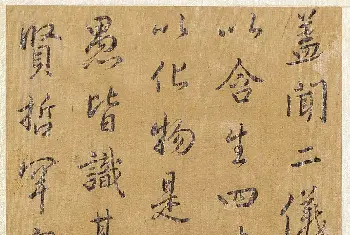 盖闻二仪
以含生四
以化物是
愚皆識其
賢哲罕